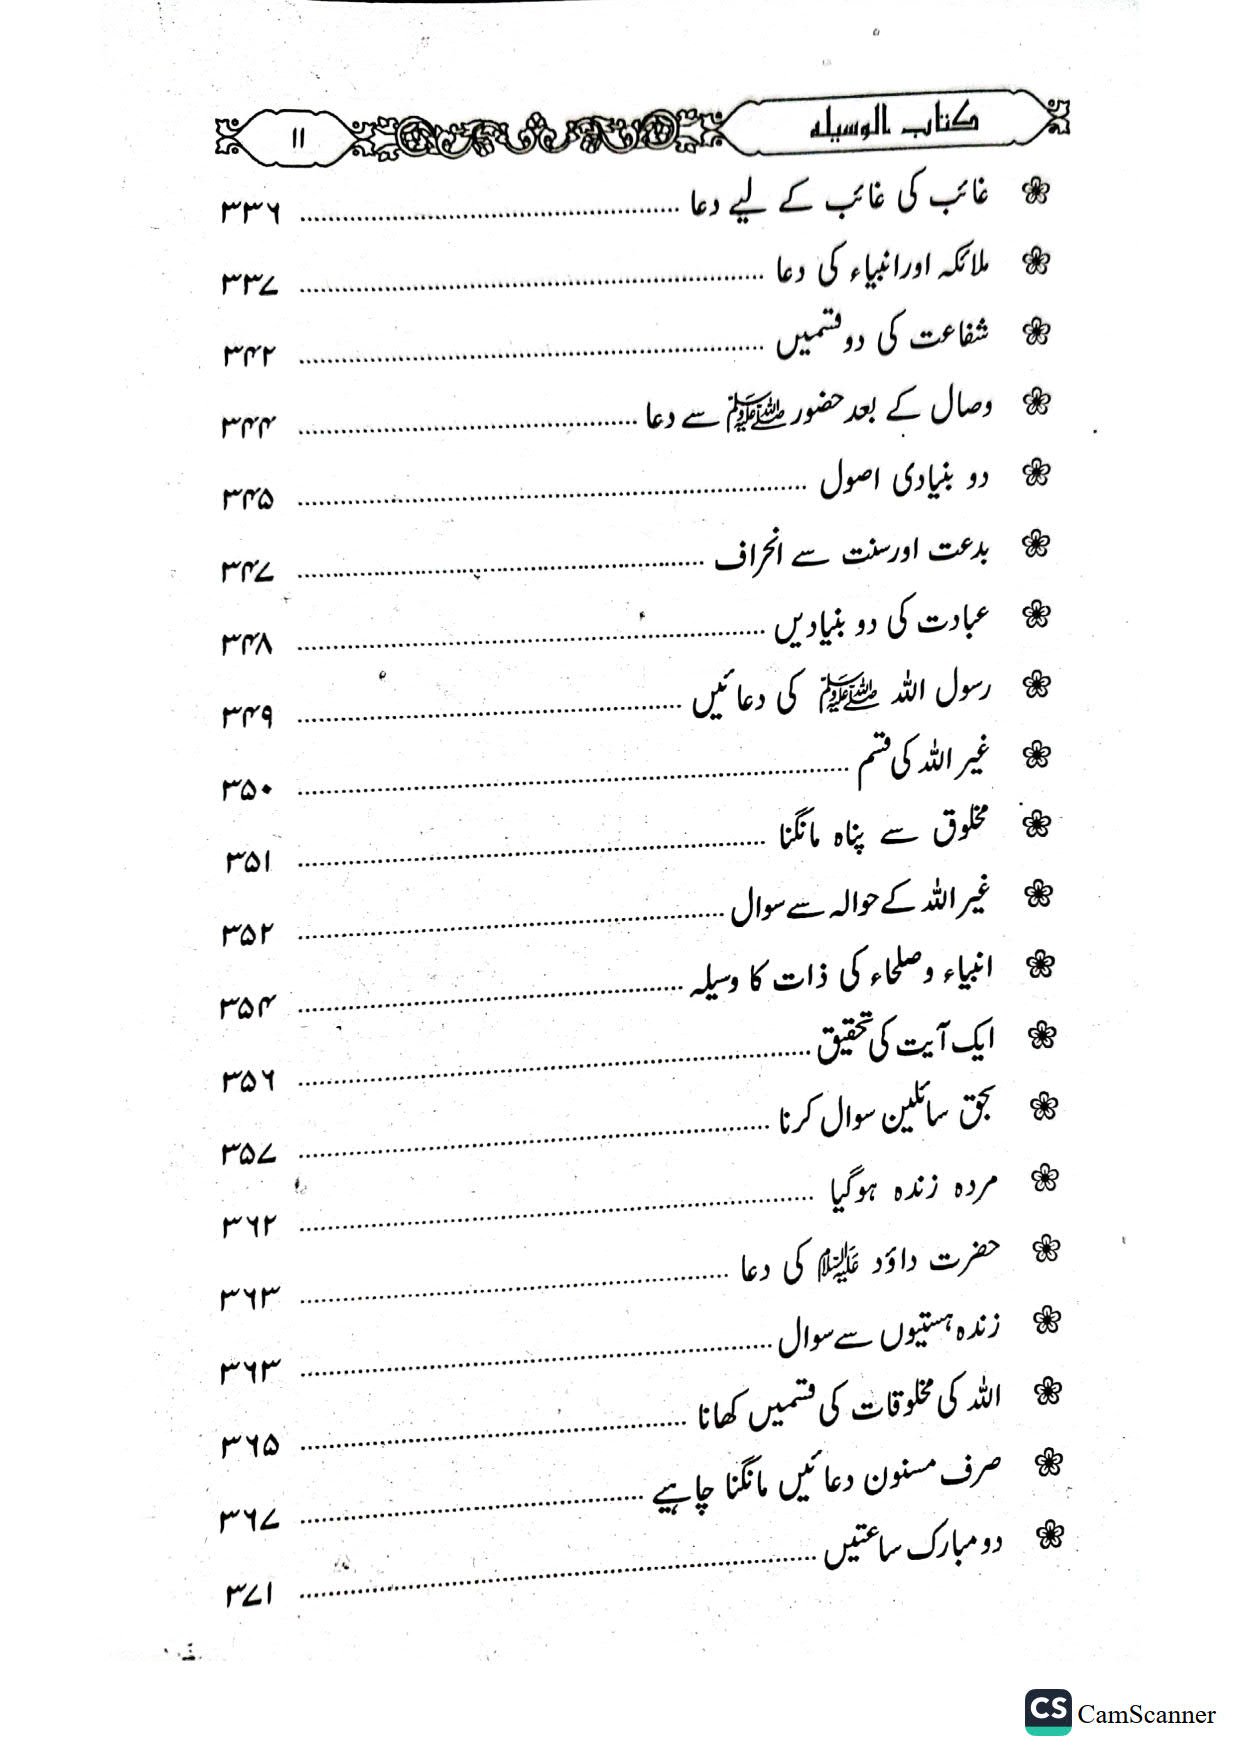 کتاب الوسیلہ ۱۱
غائب کی غائب کے لیے دعا ........ ۳۳۶
ملائکہ اور انبیاء کی دعا ........ ۳۳۷
شفاعت کی دو قسمیں ........ ۳۴۲
وصال کے بعد حضور ﷺ سے دعا ........ ۳۴۴
دو بنیادی اصول ........ ۳۴۵
بدعت اور سنت سے انحراف ........ ۳۴۷
عبادت کی دو بنیادیں ........ ۳۴۸
رسول اللہ ﷺ کی دعائیں ........ ۳۴۹
غیر اللہ کی قسم ........ ۳۵۰
مخلوق سے پناہ مانگنا ........ ۳۵۱
غیر اللہ کے حوالہ سے سوال ........ ۳۵۲
انبیاء و صلحاء کی ذات کا وسیلہ ........ ۳۵۴
ایک آیت کی تحقیق ........ ۳۵۶
بحق سائلین سوال کرنا ........ ۳۵۷
مردہ زندہ ہوگیا ........ ۳۶۲
حضرت داؤد علیہ السلام کی دعا ........ ۳۶۳
زندہ ہستیوں سے سوال ........ ۳۶۳
اللہ کی مخلوقات کی قسمیں کھانا ........ ۳۶۵
صرف مسنون دعائیں مانگنا چاہیے ........ ۳۶۷
دو مبارک ساعتیں ........ ۳۷۱
CS CamScanner